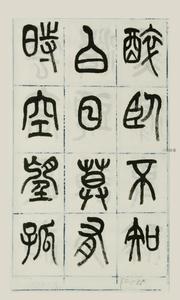 醉臥不知
白日莫有
時空望孤